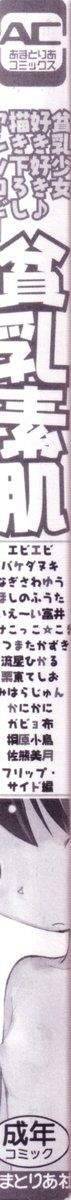 AC
あまとりあ
コミックス
貧乳少女
好き好き♪
描き下ろし
貧乳素肌
エビエビ
バケダヌキ
なぎさわゆう
ほしのふうた
いえ〜い富井
けこっこ☆こ
つまたかずき
流星ひかる
栗東てしお
みはらじゅん
かにかに
ガビョ布
桐原小鳥
佐熊美月
フリップ・
サイド編
成年
コミック
まとりあ社